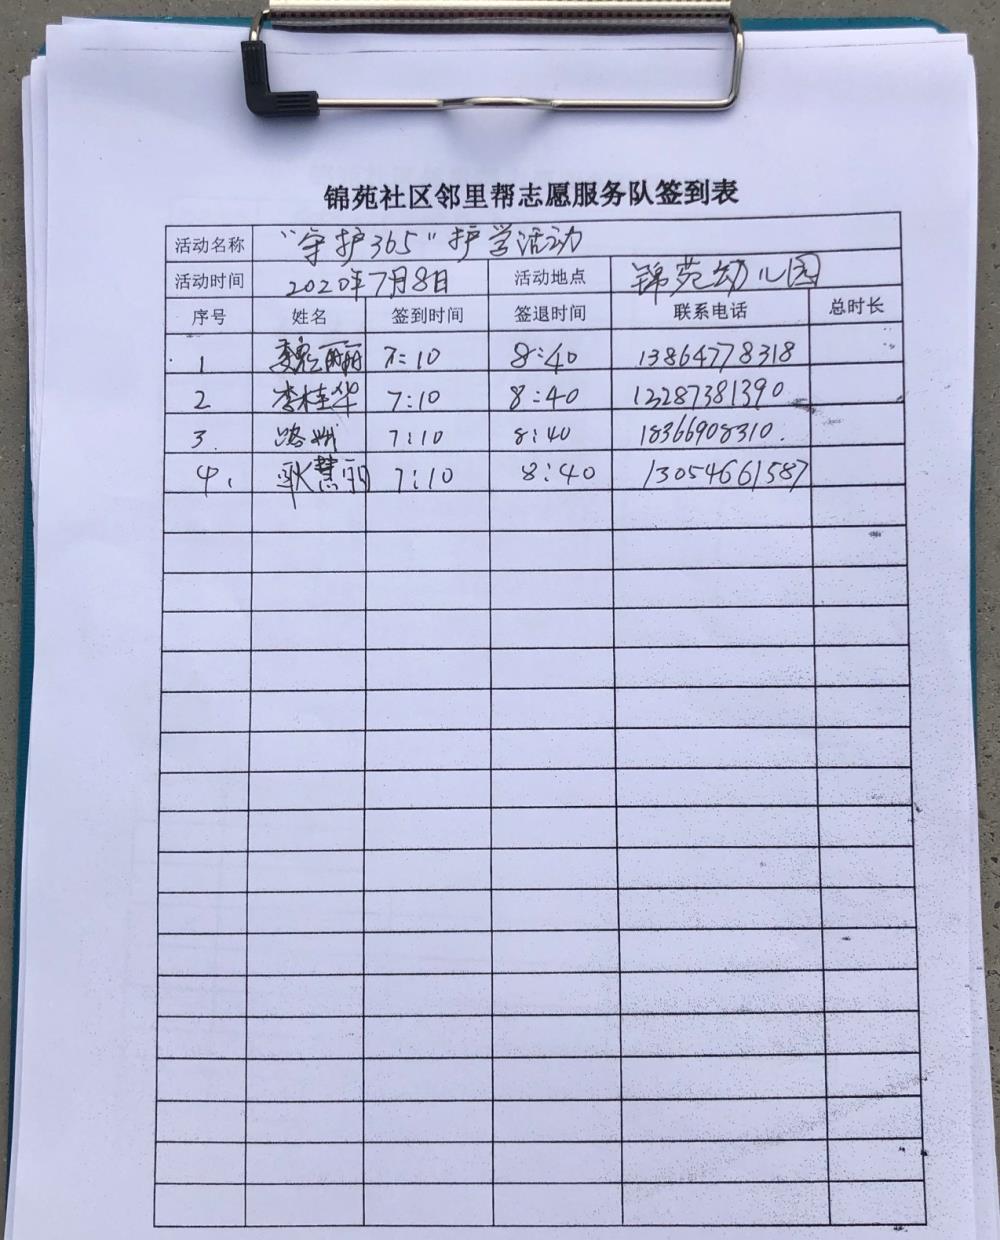 锦苑社区邻里帮志愿服务队签到表
活动名称 “守护365”护学活动
活动时间 2020年7月8日 活动地点 锦苑幼儿园
序号 姓名 签到时间 签退时间 联系电话 总时长
1 魏丽丽 7:10 8:40 13864778318
2 李桂华 7:10 8:40 13287381390
3. 7:10 8:40 18366908310.
4. 耿慧丽 7:10 8:40 13054661587